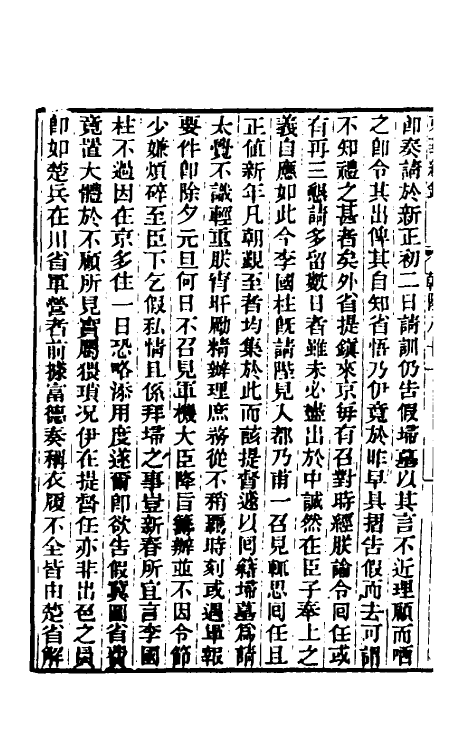 卽奏請於新正初二日請訓仍告假埽墓以其言不近理願而哂
之卽令其出俾其自知省悟乃伊竟於昨早具摺告假而去可謂
不知禮之甚者矣外省提鎭來京每有召對時經朕諭令囘任或
有再三懇請多留數日者雖未必盡出於中誠然在臣子奉上之
義自應如此今李國柱旣請陛見入都乃甫一召見輒思囘任且
正値新年凡朝覲至者均集於此而該提督遽以囘籍埽墓爲請
太覺不識輕重朕宵旰勵精辦理庶務從不稍曠時刻或遇軍報
要件卽除夕元旦何日不召見軍機大臣降旨籌辦並不因令節
少嫌煩碎至臣下乞假私情且係拜埽之事豈新春所宜言李國
柱不過因在京多住一日恐略添用度遂爾卽欲告假冀圖省費
竟置大體於不顧所見實屬猥瑣況伊在提督任亦非出色之員
卽如楚兵在川省軍營者前據富德奏稱衣履不全皆由楚省解